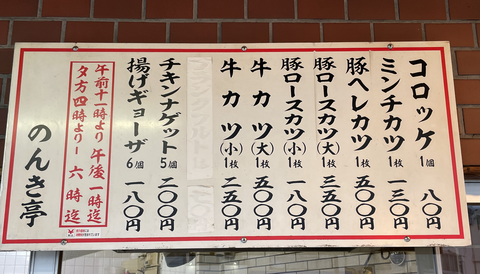 コロッケ 1個 八〇円
ミンチカツ 1枚 一三〇円
豚ヘレカツ 1枚 一五〇円
豚ロースカツ(大) 1枚 三五〇円
豚ロースカツ(小) 1枚 一八〇円
牛カツ(大) 1枚 五〇〇円
牛カツ(小) 1枚 二五〇円
チキンナゲット 5個 二〇〇円
揚げギョーザ 6個 一八〇円
午前十一時より午後一時迄
夕方四時より一六時迄
のんき亭